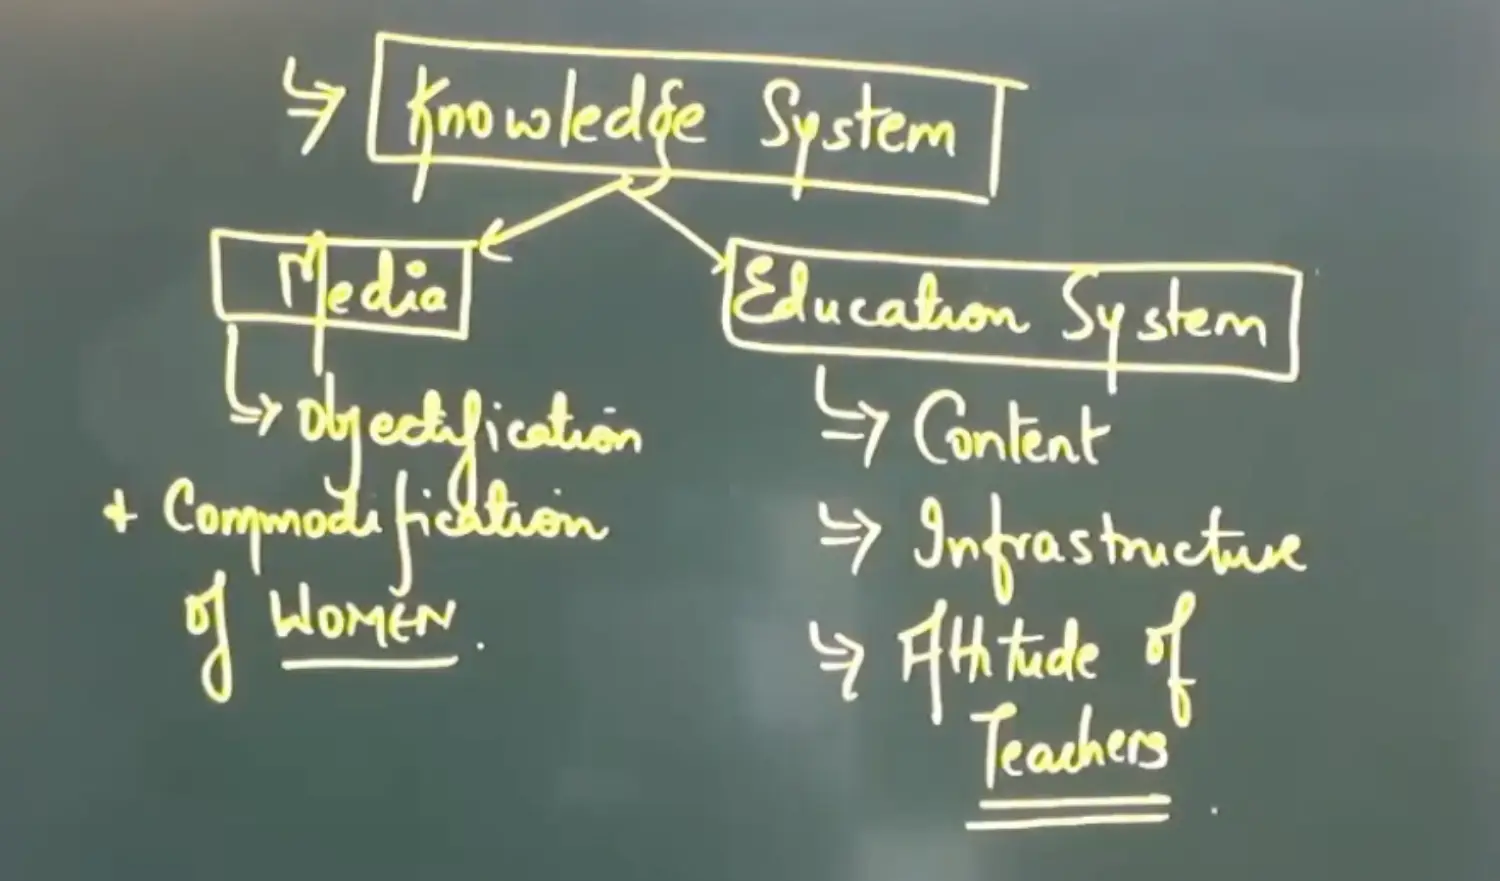 Knowledge System
Media
Education System
Objectification
+ Commodification
of WOMEN.
Content
Infrastructure
Attitude of
Teachers.